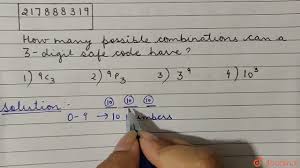 217888319
How many possible combinations can a
3-digit safe code have?
1) ⁹C₃ 2) ⁹P₃ 3) 3⁹ 4) 10³
Solution:-
10 10 10
0-9 → 10 numbers